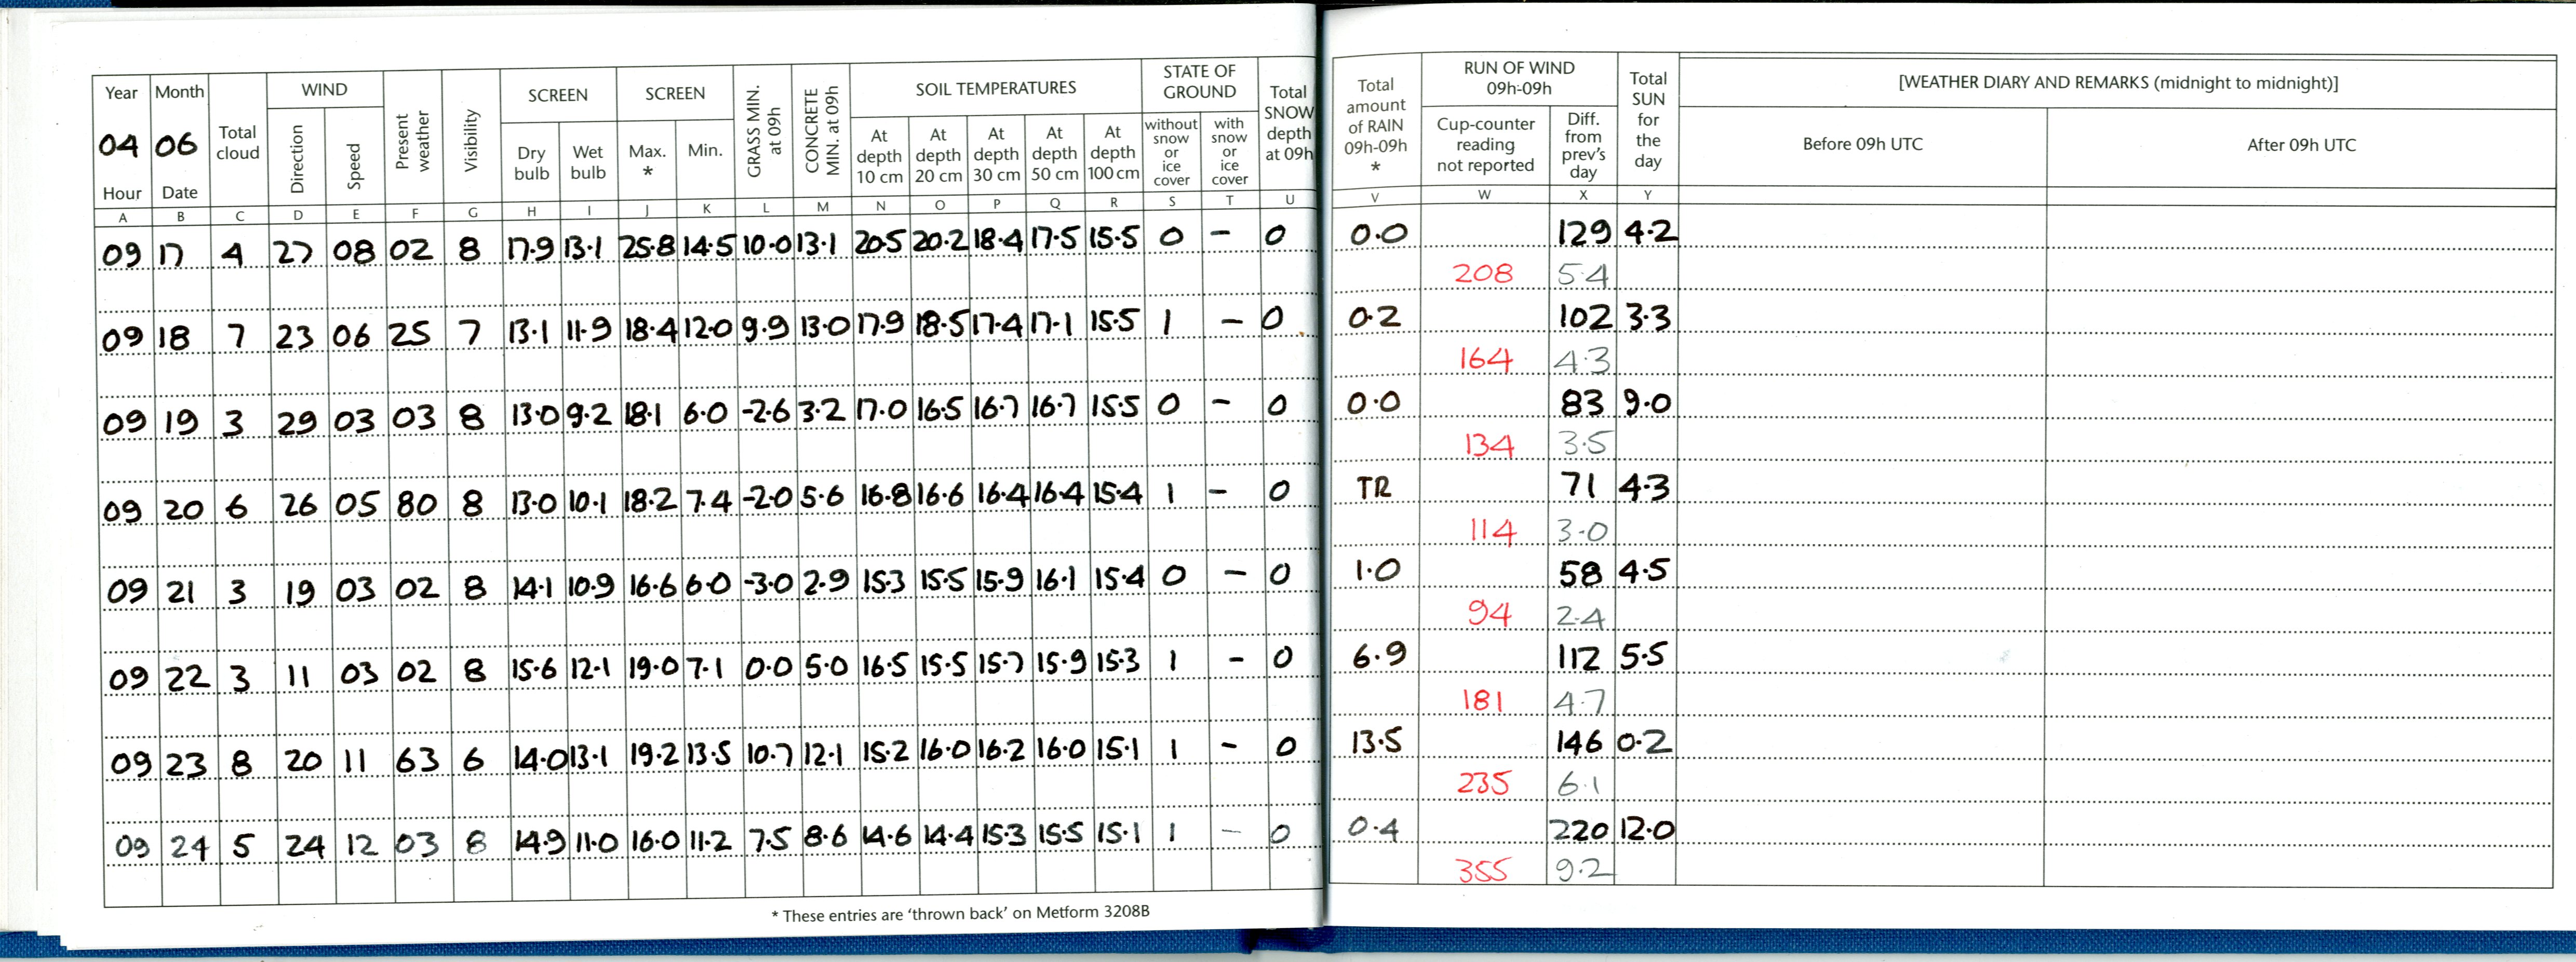 Year Month Total cloud WIND Present weather Visibility SCREEN SCREEN GRASS MIN. at 09h CONCRETE MIN. at 09h SOIL TEMPERATURES STATE OF GROUND Total SNOW depth at 09h Total amount of RAIN 09h-09h * RUN OF WIND 09h-09h Total SUN for the day [WEATHER DIARY AND REMARKS (midnight to midnight)]
04 06 Direction Speed Dry bulb Wet bulb Max. * Min. At depth 10 cm At depth 20 cm At depth 30 cm At depth 50 cm At depth 100 cm without snow or ice cover with snow or ice cover Cup-counter reading not reported Diff. from prev's day Before 09h UTC After 09h UTC
Hour Date
A B C D E F G H I J K L M N O P Q R S T U V W X Y
09 17 4 27 08 02 8 17.9 13.1 25.8 14.5 10.0 13.1 20.5 20.2 18.4 17.5 15.5 0 - 0 0.0 129 4.2
208 5.4
09 18 7 23 06 25 7 13.1 11.9 18.4 12.0 9.9 13.0 17.9 18.5 17.4 17.1 15.5 1 - 0 0.2 102 3.3
164 4.3
09 19 3 29 03 03 8 13.0 9.2 18.1 6.0 -2.6 3.2 17.0 16.5 16.7 16.7 15.5 0 - 0 0.0 83 9.0
134 3.5
09 20 6 26 05 80 8 13.0 10.1 18.2 7.4 -2.0 5.6 16.8 16.6 16.4 16.4 15.4 1 - 0 TR 71 4.3
114 3.0
09 21 3 19 03 02 8 14.1 10.9 16.6 6.0 -3.0 2.9 15.3 15.5 15.9 16.1 15.4 0 - 0 1.0 58 4.5
94 2.4
09 22 3 11 03 02 8 15.6 12.1 19.0 7.1 0.0 5.0 16.5 15.5 15.7 15.9 15.3 1 - 0 6.9 112 5.5
181 4.7
09 23 8 20 11 63 6 14.0 13.1 19.2 13.5 10.7 12.1 15.2 16.0 16.2 16.0 15.1 1 - 0 13.5 146 0.2
235 6.1
09 24 5 24 12 03 8 14.9 11.0 16.0 11.2 7.5 8.6 14.6 14.4 15.3 15.5 15.1 1 - 0 0.4 220 12.0
355 9.2
* These entries are 'thrown back' on Metform 3208B